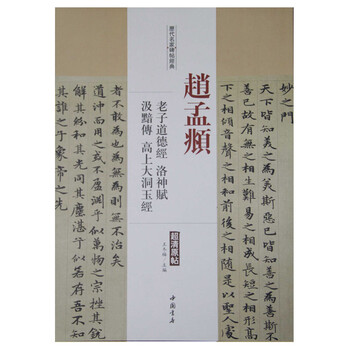 歷代名家碑帖經典
趙孟頫
老子道德經 洛神賦
汲黯傳 高上大洞玉經
超清原帖
王冬梅·主編
中國書店
妙之門
天下皆知美之為美斯惡已皆知善之為善斯不
善已故有無之相生難易之相成長短之相形高下
之相傾音聲之相和前後之相隨是以聖人處
者不敢為也為無為則無不治矣
道沖而用之或不盈淵乎似萬物之宗挫其銳解
其紛和其光同其塵湛乎似若存吾不知
其誰之子象帝之先